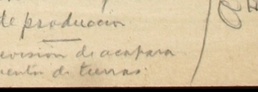 de producción
evisión de acapara
mento de tierras.